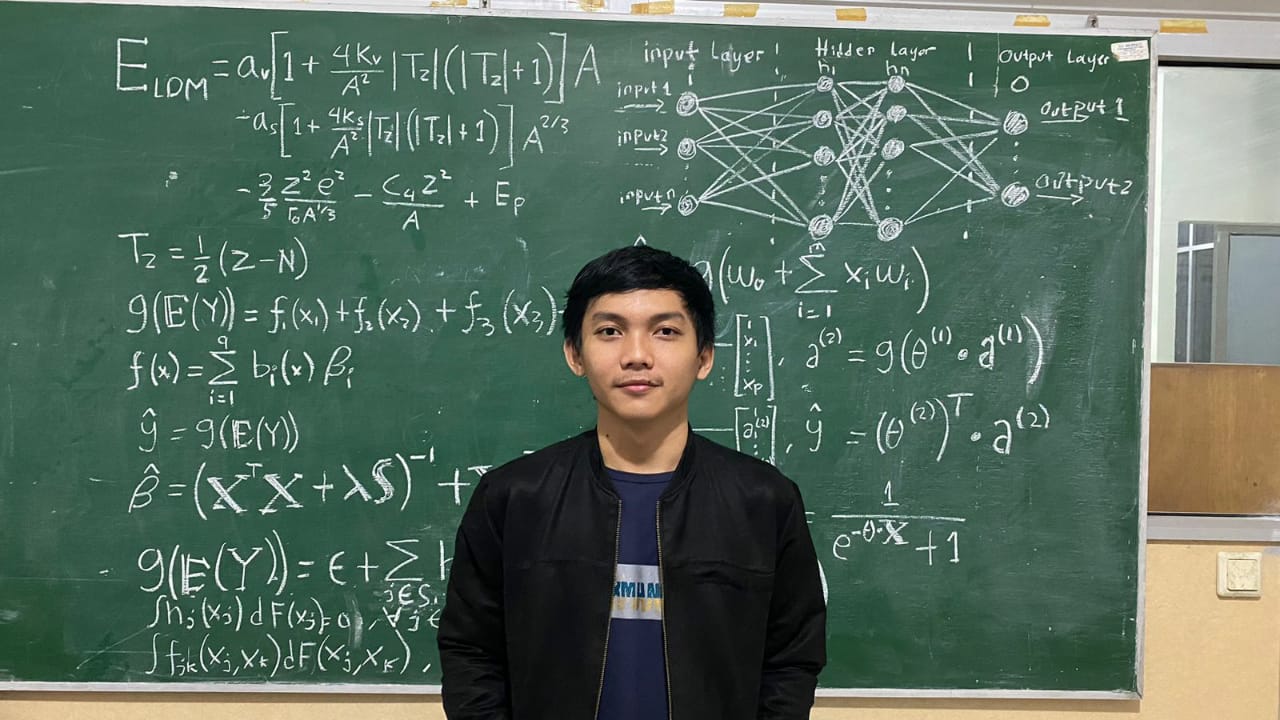 E_LDM = a_v[1 + 4K_v/A² |T_z|(|T_z|+1)] A
- a_s[1 + 4k_s/A² |T_z|(|T_z|+1)] A^{2/3}
- 3/5 Z²e²/r_0A^{1/3} - C_4 Z²/A + E_p
T_z = 1/2 (Z-N)
g(𝔼(Y)) = f_1(x_1) + f_2(x_2) + f_3(x_3)
f(x) = Σ_{i=1}^{q} b_i(x) β_i
ŷ = g(𝔼(Y))
β̂ = (X^T X + λS)^{-1} +
g(𝔼(Y)) = ϵ + Σ_{j∈S_1} h
∫h_j(x_j) dF(x_j) = 0, ∀j ∈
∫f_{jk}(x_j, x_k) dF(x_j, x_k),
input Layer Hidden Layer Output Layer
h_1 h_n O
input 1 output 1
input 2
input n output 2
g(w_0 + Σ_{i=1}^{m} x_i w_i)
[1 x_1 ⋮ x_p], a^{(2)} = g(θ^{(1)} · a^{(1)})
ŷ = (θ^{(2)})^T · a^{(2)}
= 1/(e^{-θ·X} + 1)